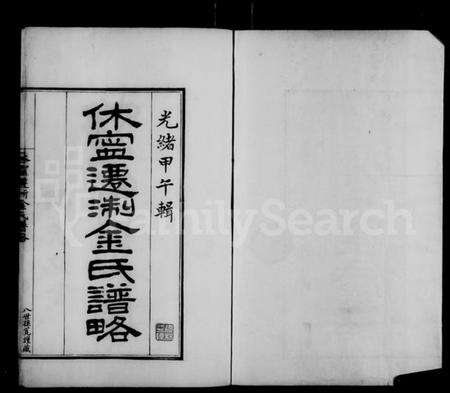 光緒甲午輯
休寧遷浙金氏譜略
FamilySearch